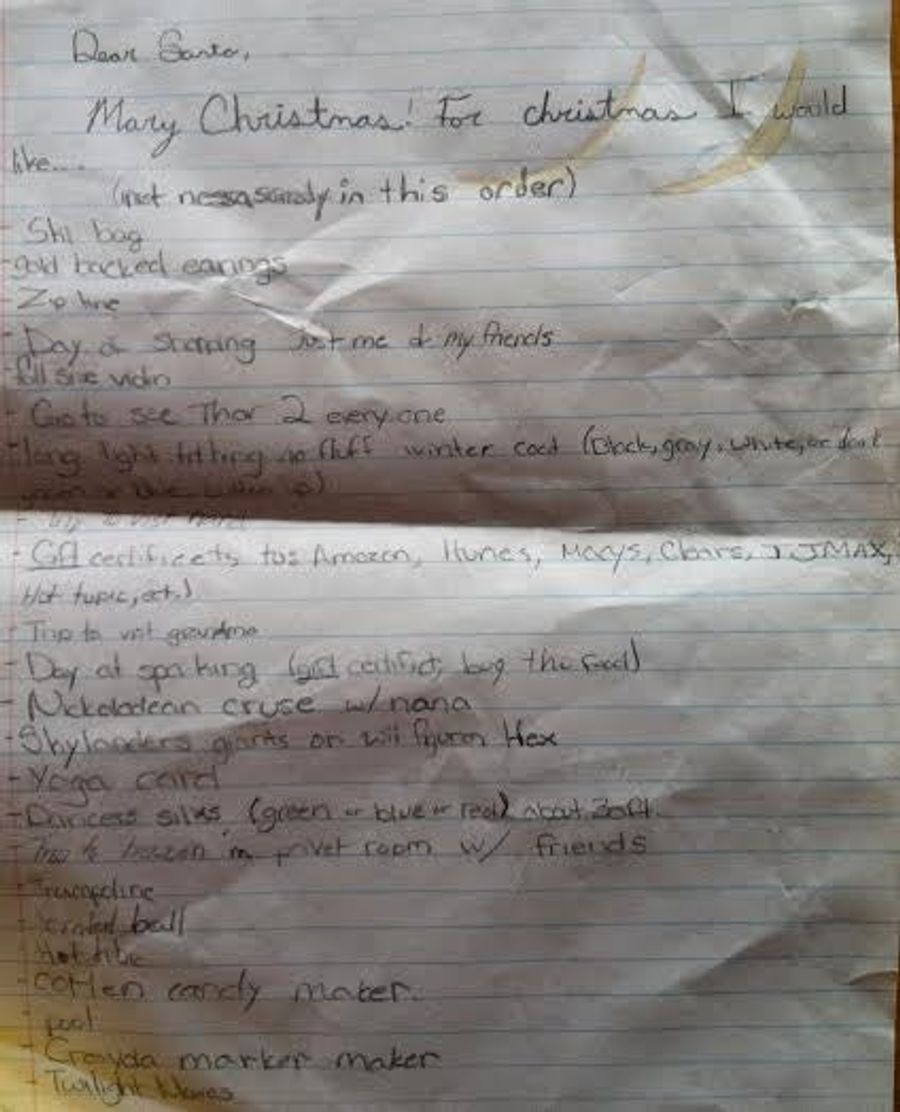 Dear Santa,
Mary Christmas! For christmas I would
like....
(not nessasaraly in this order)
- Ski bag
- gold backed earings
- Zip line
- Day of shopping Just me & my friends
- full size violin
- Go to see Thor 2 everyone
- long tight fitting no fluff winter coat (black, gray, white, or dont
- Gift certificets to: Amazon, Hunes, Macys, Cbars, TJMAX,
Hot topic, ect.)
- Trip to visit grandma
- Day at spa king (gift certifict; buy the food)
- Nickolodean cruse w/ nana
- Skylanders giants on wii figuren Hex
- Yoga card
- Dancess silks (green or blue or red) about 30ft.
- in privet room w/ friends
- Trampoline
- ball
- Hot tube
- cotten candy maker.
- pool
- Crayola marker maker
- Twilight